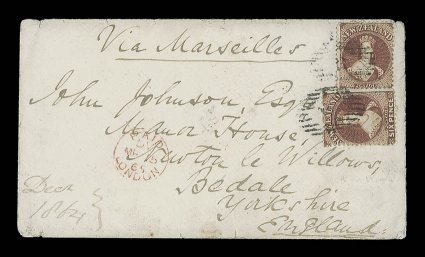 Via Marseilles
NEW ZEALAND
John Johnson, Esq
Manor House,
Newton le Willows,
LONDON
Bedale
Yorkshire
England.
SIX PENCE
Decr
1864